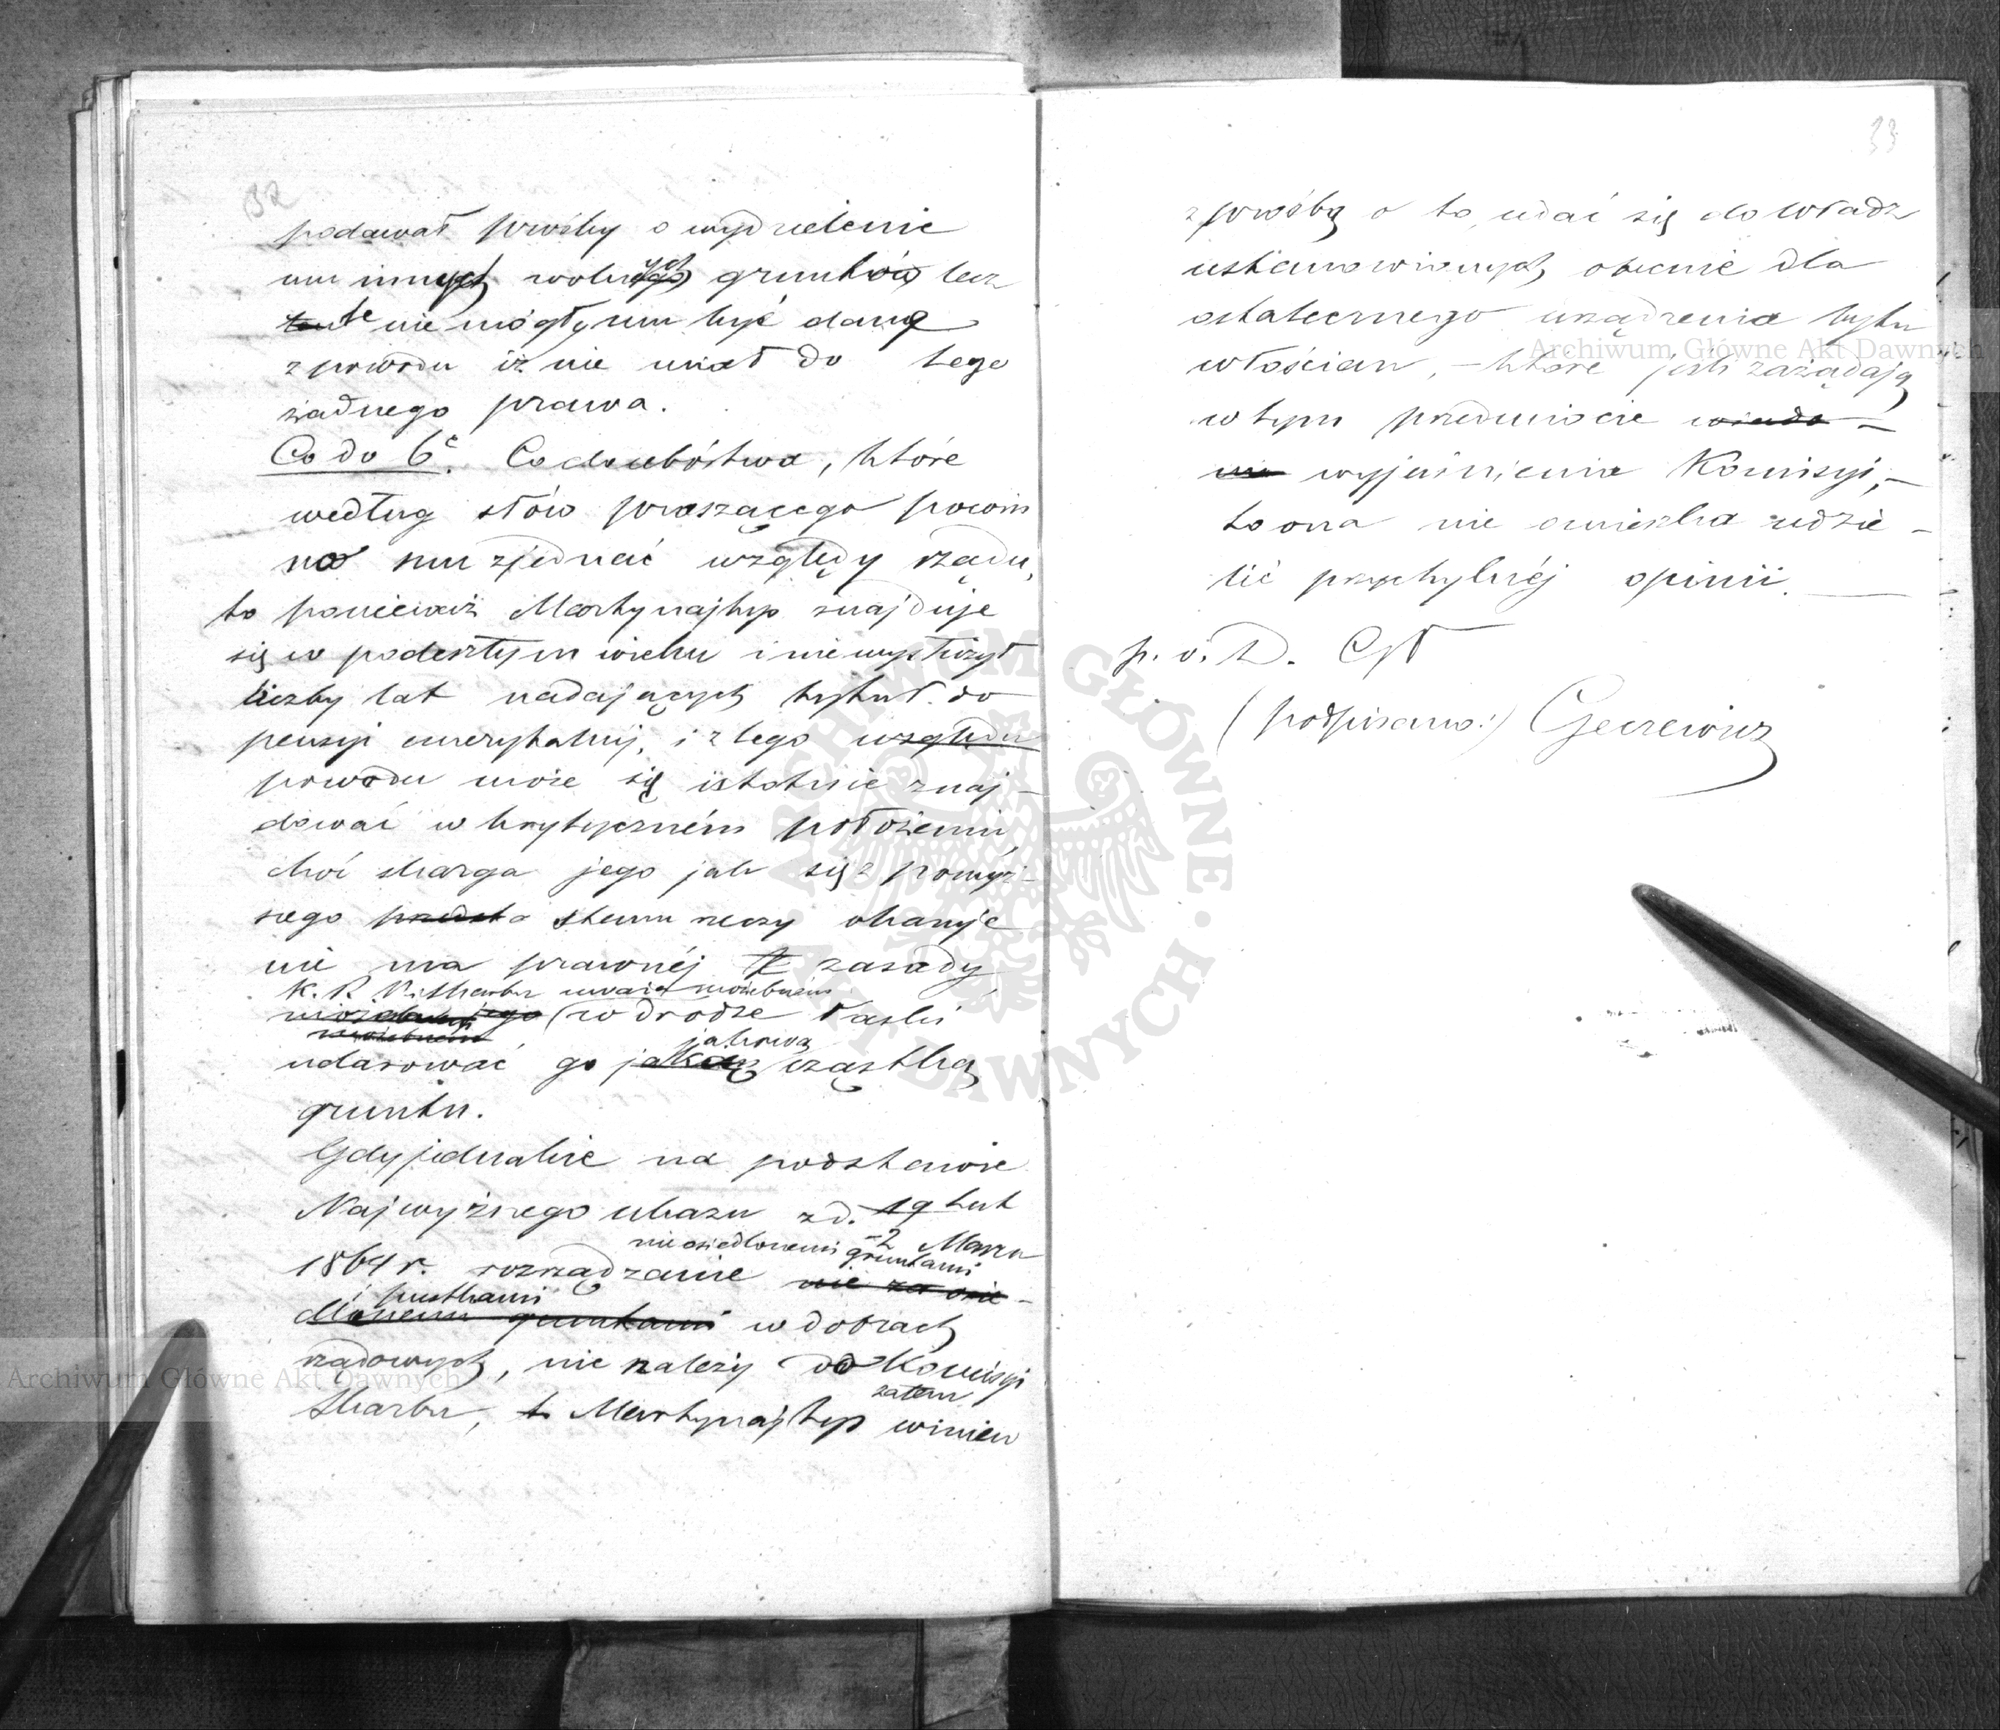 32
podawał prośby o wydzielenie
mu innych wolnych gruntów lecz
te nie mogły mu być dane
z powodu iż nie miał do tego
żadnego prawa.
Co do 6e. Co do ubóstwa, które
według słów proszącego powin
no mu zjednać względy rządu,
to ponieważ Martynajtys znajduje
się w podeszłym wieku i nie wysłużył
liczby lat nadających tytuł do
pensyi emerytalnej, i z tego względu
powodu może się istotnie znaj-
dować w krytyczném położeniu,
choć skarga jego jak się z powyż-
szego przedsta stanu rzeczy okazuje
nie ma prawnéj zasady,
K. R. P. i Skarbu uważa możebnem
(w drodze łaski
możebnem
jakową
udarować go jakąś cząstką
gruntu.
Gdy jednakże na podstawie
Najwyższego ukazu z d. 19 Lut
2 Marca
nieosiedlonemi gruntami
1864 r. rozrządzanie nie za osie-
pustkami
dłonemi gruntami w dobrach
rządowych, nie należy do Komisyi
zatem
Skarbu, t Martynajtys winien
33
z prośbą o to udać się do władz
ustanowionych obecnie dla
ostatecznego urządzenia bytu
włościan, – które jeśli zażądają
w tym przedmiocie wiado-
mo wyjaśnienia Komisyi, –
to ona nie omieszka udzie-
lić przychylnéj opinii.
p. o. D. Cył
(podpisano:) Gecewicz
Archiwum Główne Akt Dawnych
Archiwum Główne Akt Dawnych
ARCHIWUM GŁÓWNE AKT DAWNYCH